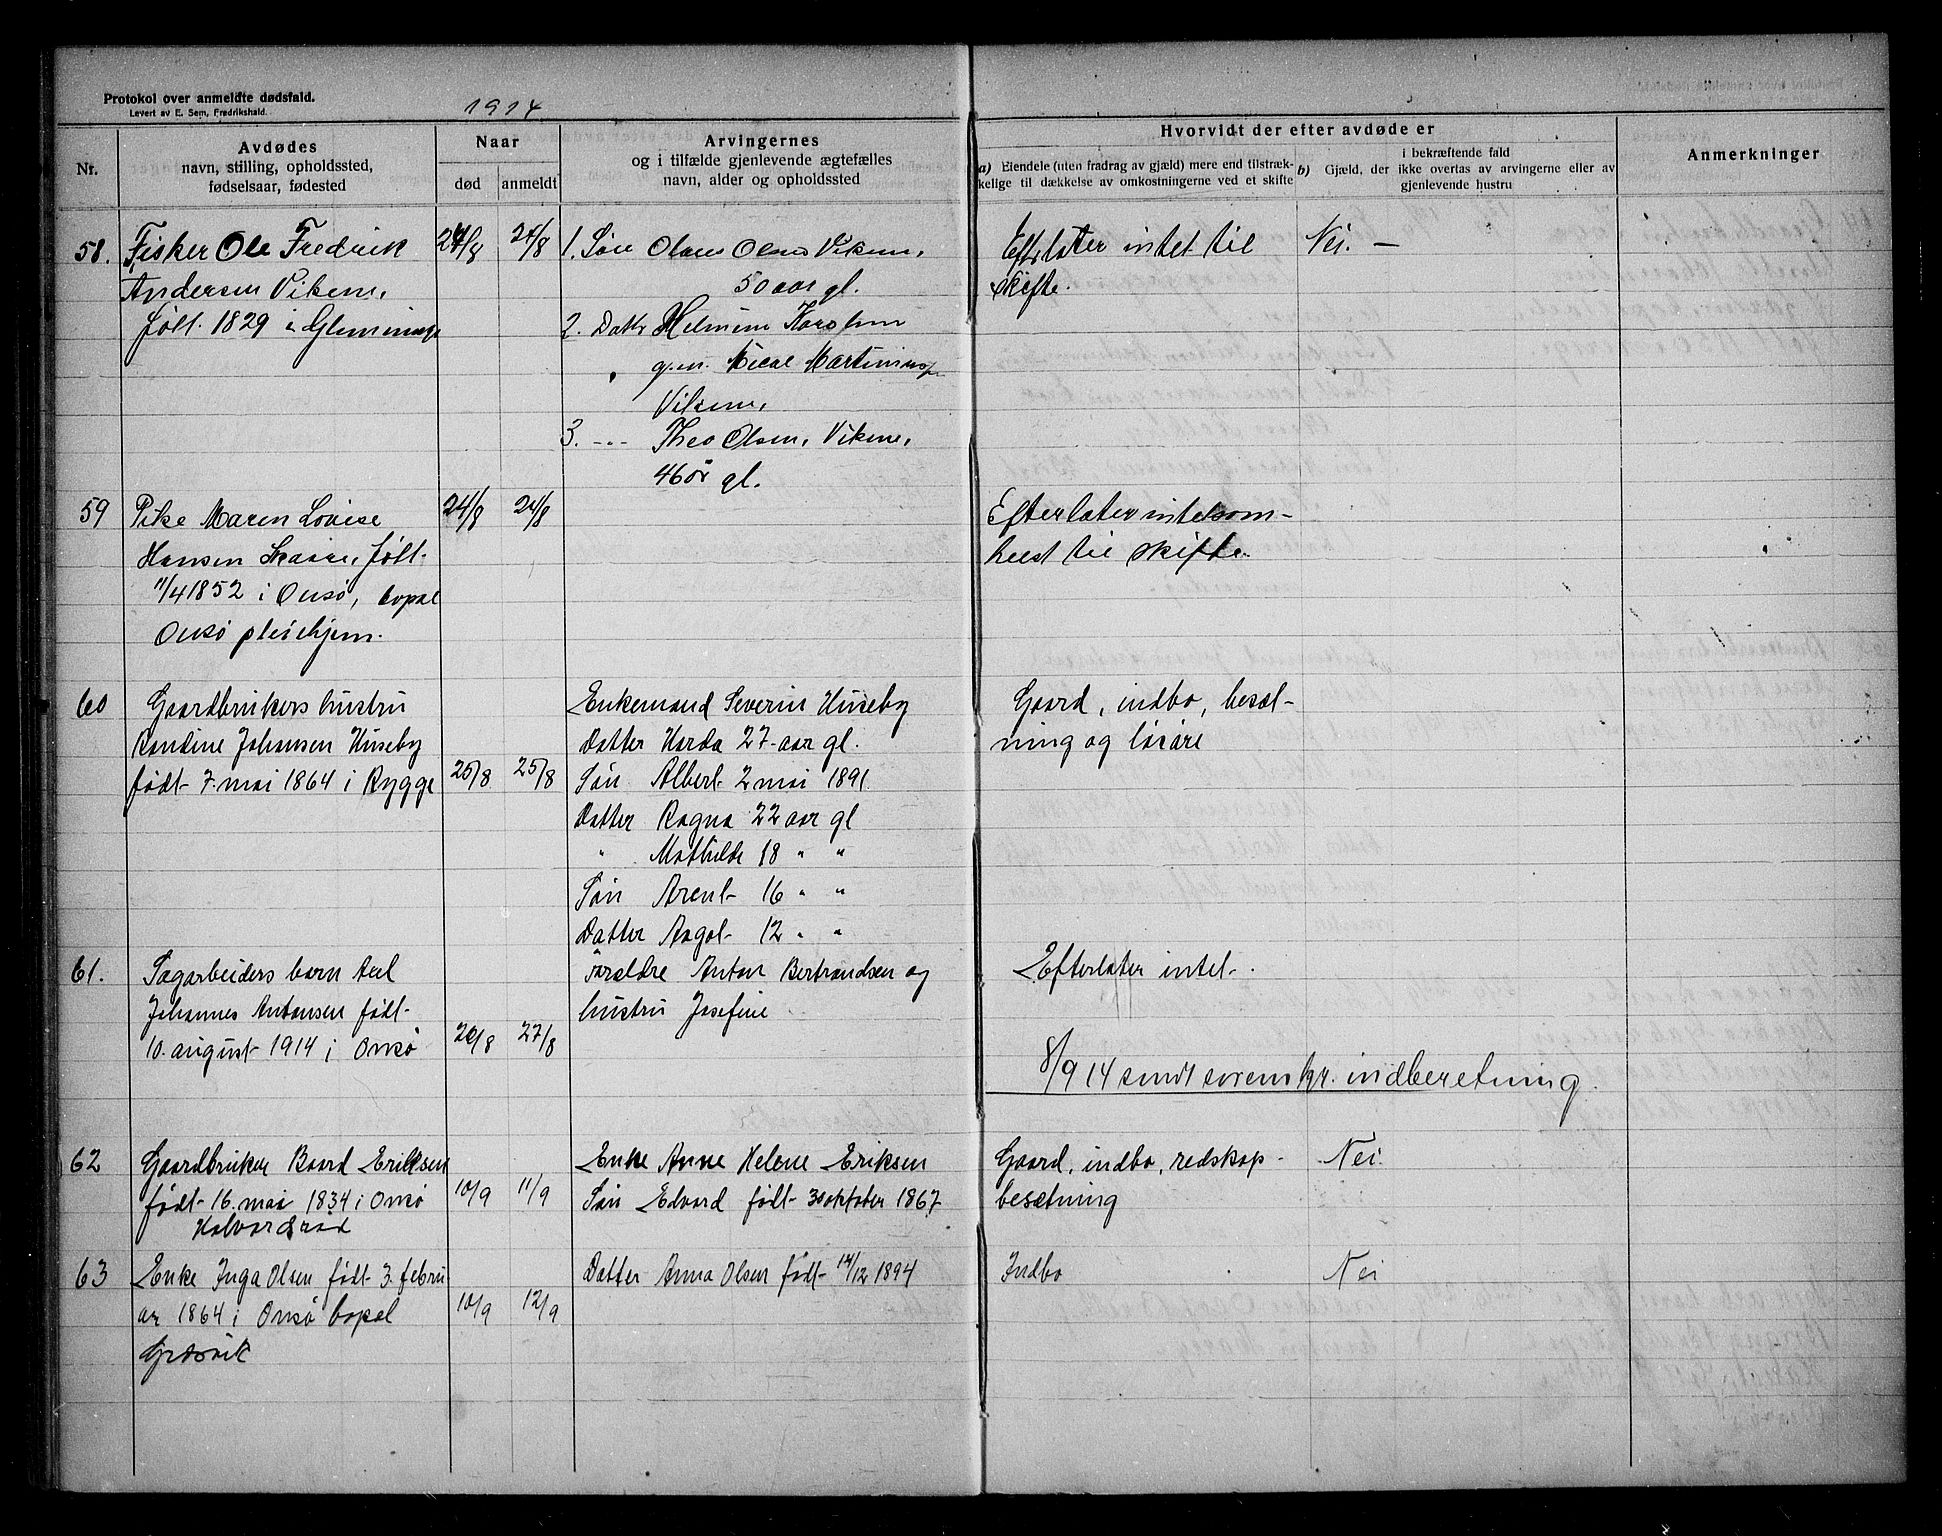 Protokol over anmeldte dødsfald.
Levert av E. Sem, Fredrikshald.
1914
Nr.
Avdødes
navn, stilling, opholdssted,
fødselsaar, fødested
Naar
død
anmeldt
Arvingernes
og i tilfælde gjenlevende ægtefælles
navn, alder og opholdssted
Hvorvidt der efter avdøde er
a) Eiendele (uten fradrag av gjæld) mere end tilstræk-
kelige til dækkelse av omkostningerne ved et skifte
i bekræftende fald
b) Gjæld, der ikke overtas av arvingerne eller av
gjenlevende hustru
Anmerkninger
58. Fisker Ole Fredrik
Andersen Vikene,
født. 1829 i Glemminge
24/8 24/8
1. Søn Olaus Olsen Vikene,
50 aar gl.
2. Dattr Helmine Karoline
g.m.
Vikene,
3. -"- Thea Olsen, Vikene,
46 år gl.
Efterlater intet til
skifte.
Nei. —
59 Pike Maren Lovise
Hansen Skaare, født.
11/4 1852 i Onsø, bopæl
Onsø pleiehjem.
24/8 24/8
Efterlater intetsom-
helst til skifte.
60 Gaardbrukers hustru
Randine Johansen Huseby
født 7. mai 1864 i Rygge
25/8 25/8
Enkemand Severin Huseby
Datter Harda 27 aar gl.
Søn Albert 2 mai 1891
Datter Ragna 22 aar gl
" Mathilde 18 " "
Søn Arent 16 " "
Datter Aagot 12 " "
Gaard, indbo, besæt-
ning og løsøre
61. Sagarbeiders barn Axel
Johannes Antonsen født
10. august 1914 i Onsø
20/8 27/8
Forældre Anton Bertrandsen og
hustru Josefine
Efterlater intet.
8/9 14 sendt sorenskr. indberetning.
62 Gaardbruker Baard Eriksen
født 16. mai 1834 i Onsø
Halvardsrød
10/9 11/9
Enke Anne Helene Eriksen
Søn Edvard født 30 oktober 1867
Gaard, indbo, redskap -
besætning
Nei.
63 Enke Inga Olsen født 3. febru
ar 1864 i Onsø bopæl
Græsvik
10/9 12/9
Datter Anna Olsen født 14/12 1894
Indbo
Nei